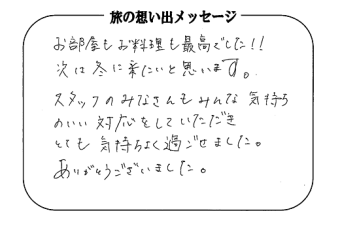 旅の想い出メッセージ
お部屋もお料理も最高でした!!
次は冬に来たいと思います。
スタッフのみなさんもみんな気持ち
のいい対応をしていただき
とても気持ちよく過ごせました。
ありがとうございました。